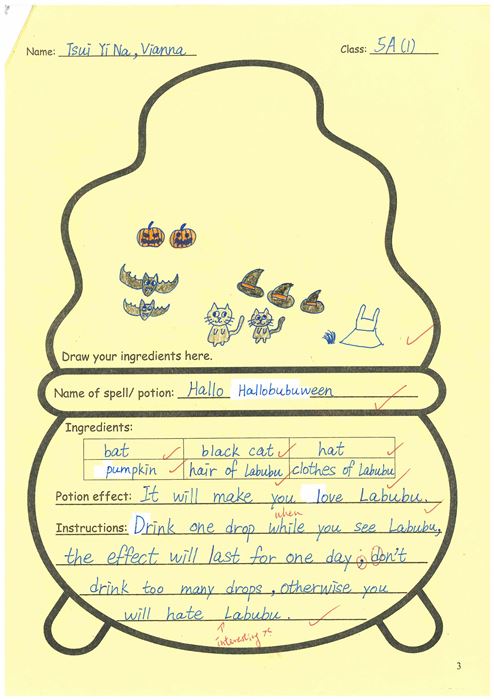 Name: Tsui Yi Na, Vianna Class: 5A (1)
Draw your ingredients here.
Name of spell/ potion: Hallo Hallobubuween
Ingredients:
bat black cat hat
pumpkin hair of Labubu clothes of Labubu
Potion effect: It will make you love Labubu.
when
Instructions: Drink one drop while you see Labubu,
the effect will last for one day; don't
drink too many drops, otherwise you
will hate Labubu.
3